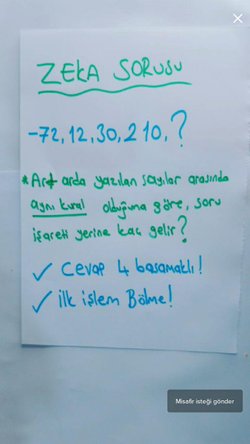 ZEKA SORUSU
-72, 12, 30, 210, ?
* Art arda yazılan sayılar arasında
aynı kural olduğuna göre, soru
işareti yerine kaç gelir?
✓ Cevap 4 basamaklı!
✓ İlk işlem Bölme!
Misafir isteği gönder